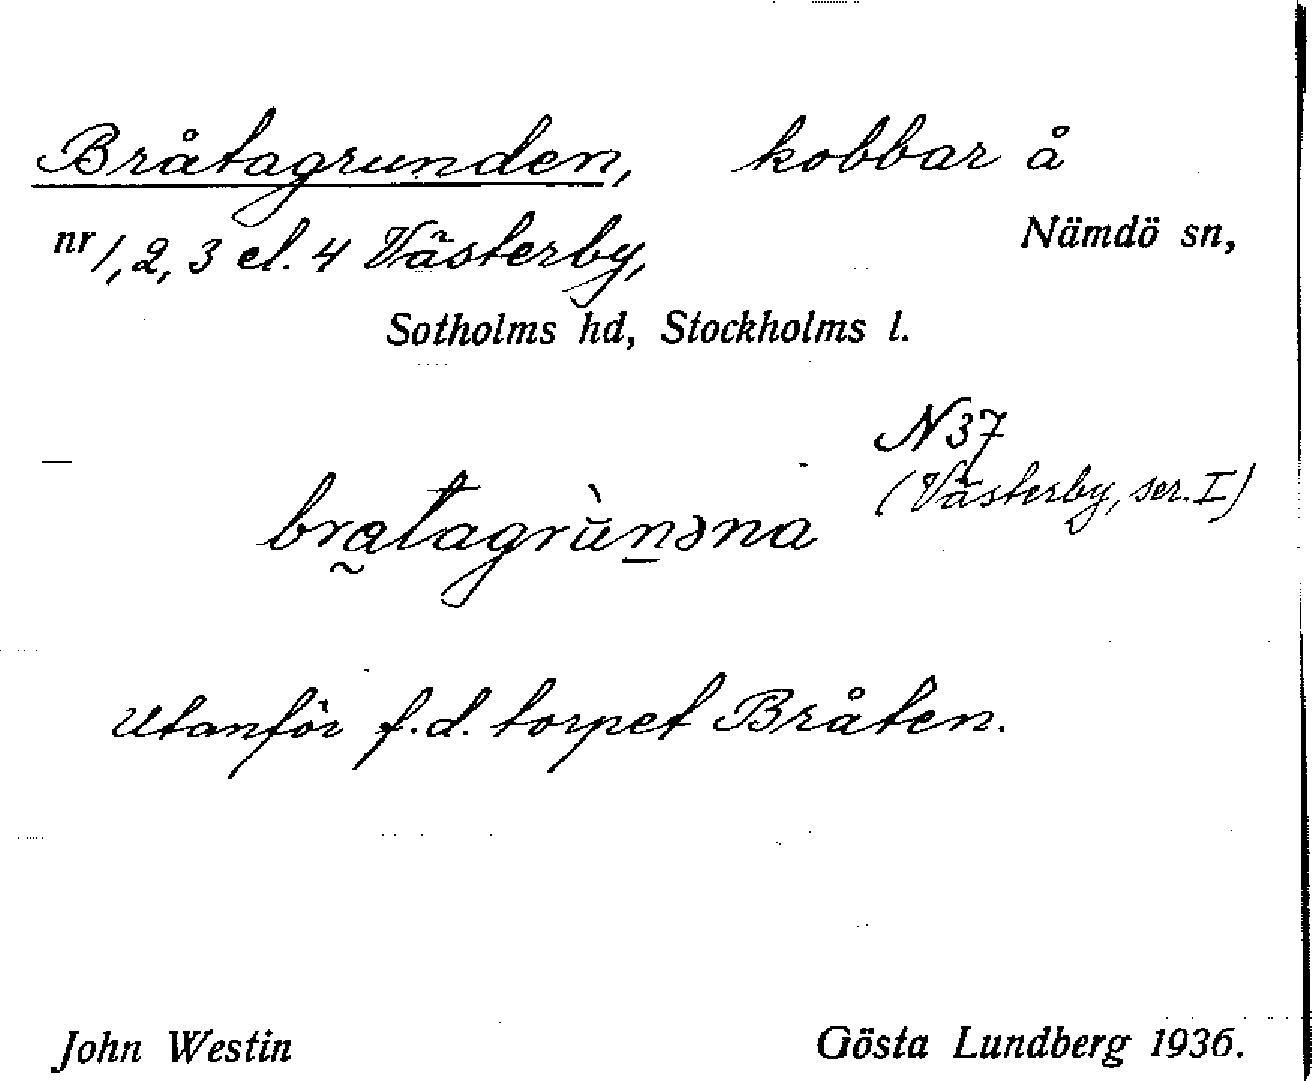 Bråtagrunden, kobbar å
nr 1, 2, 3 el. 4 Västerby, Nämdö sn,
Sotholms hd, Stockholms l.
N 37
(Västerby, ser. I)
Utanför f.d. torpet Bråten.
John Westin Gösta Lundberg 1936.